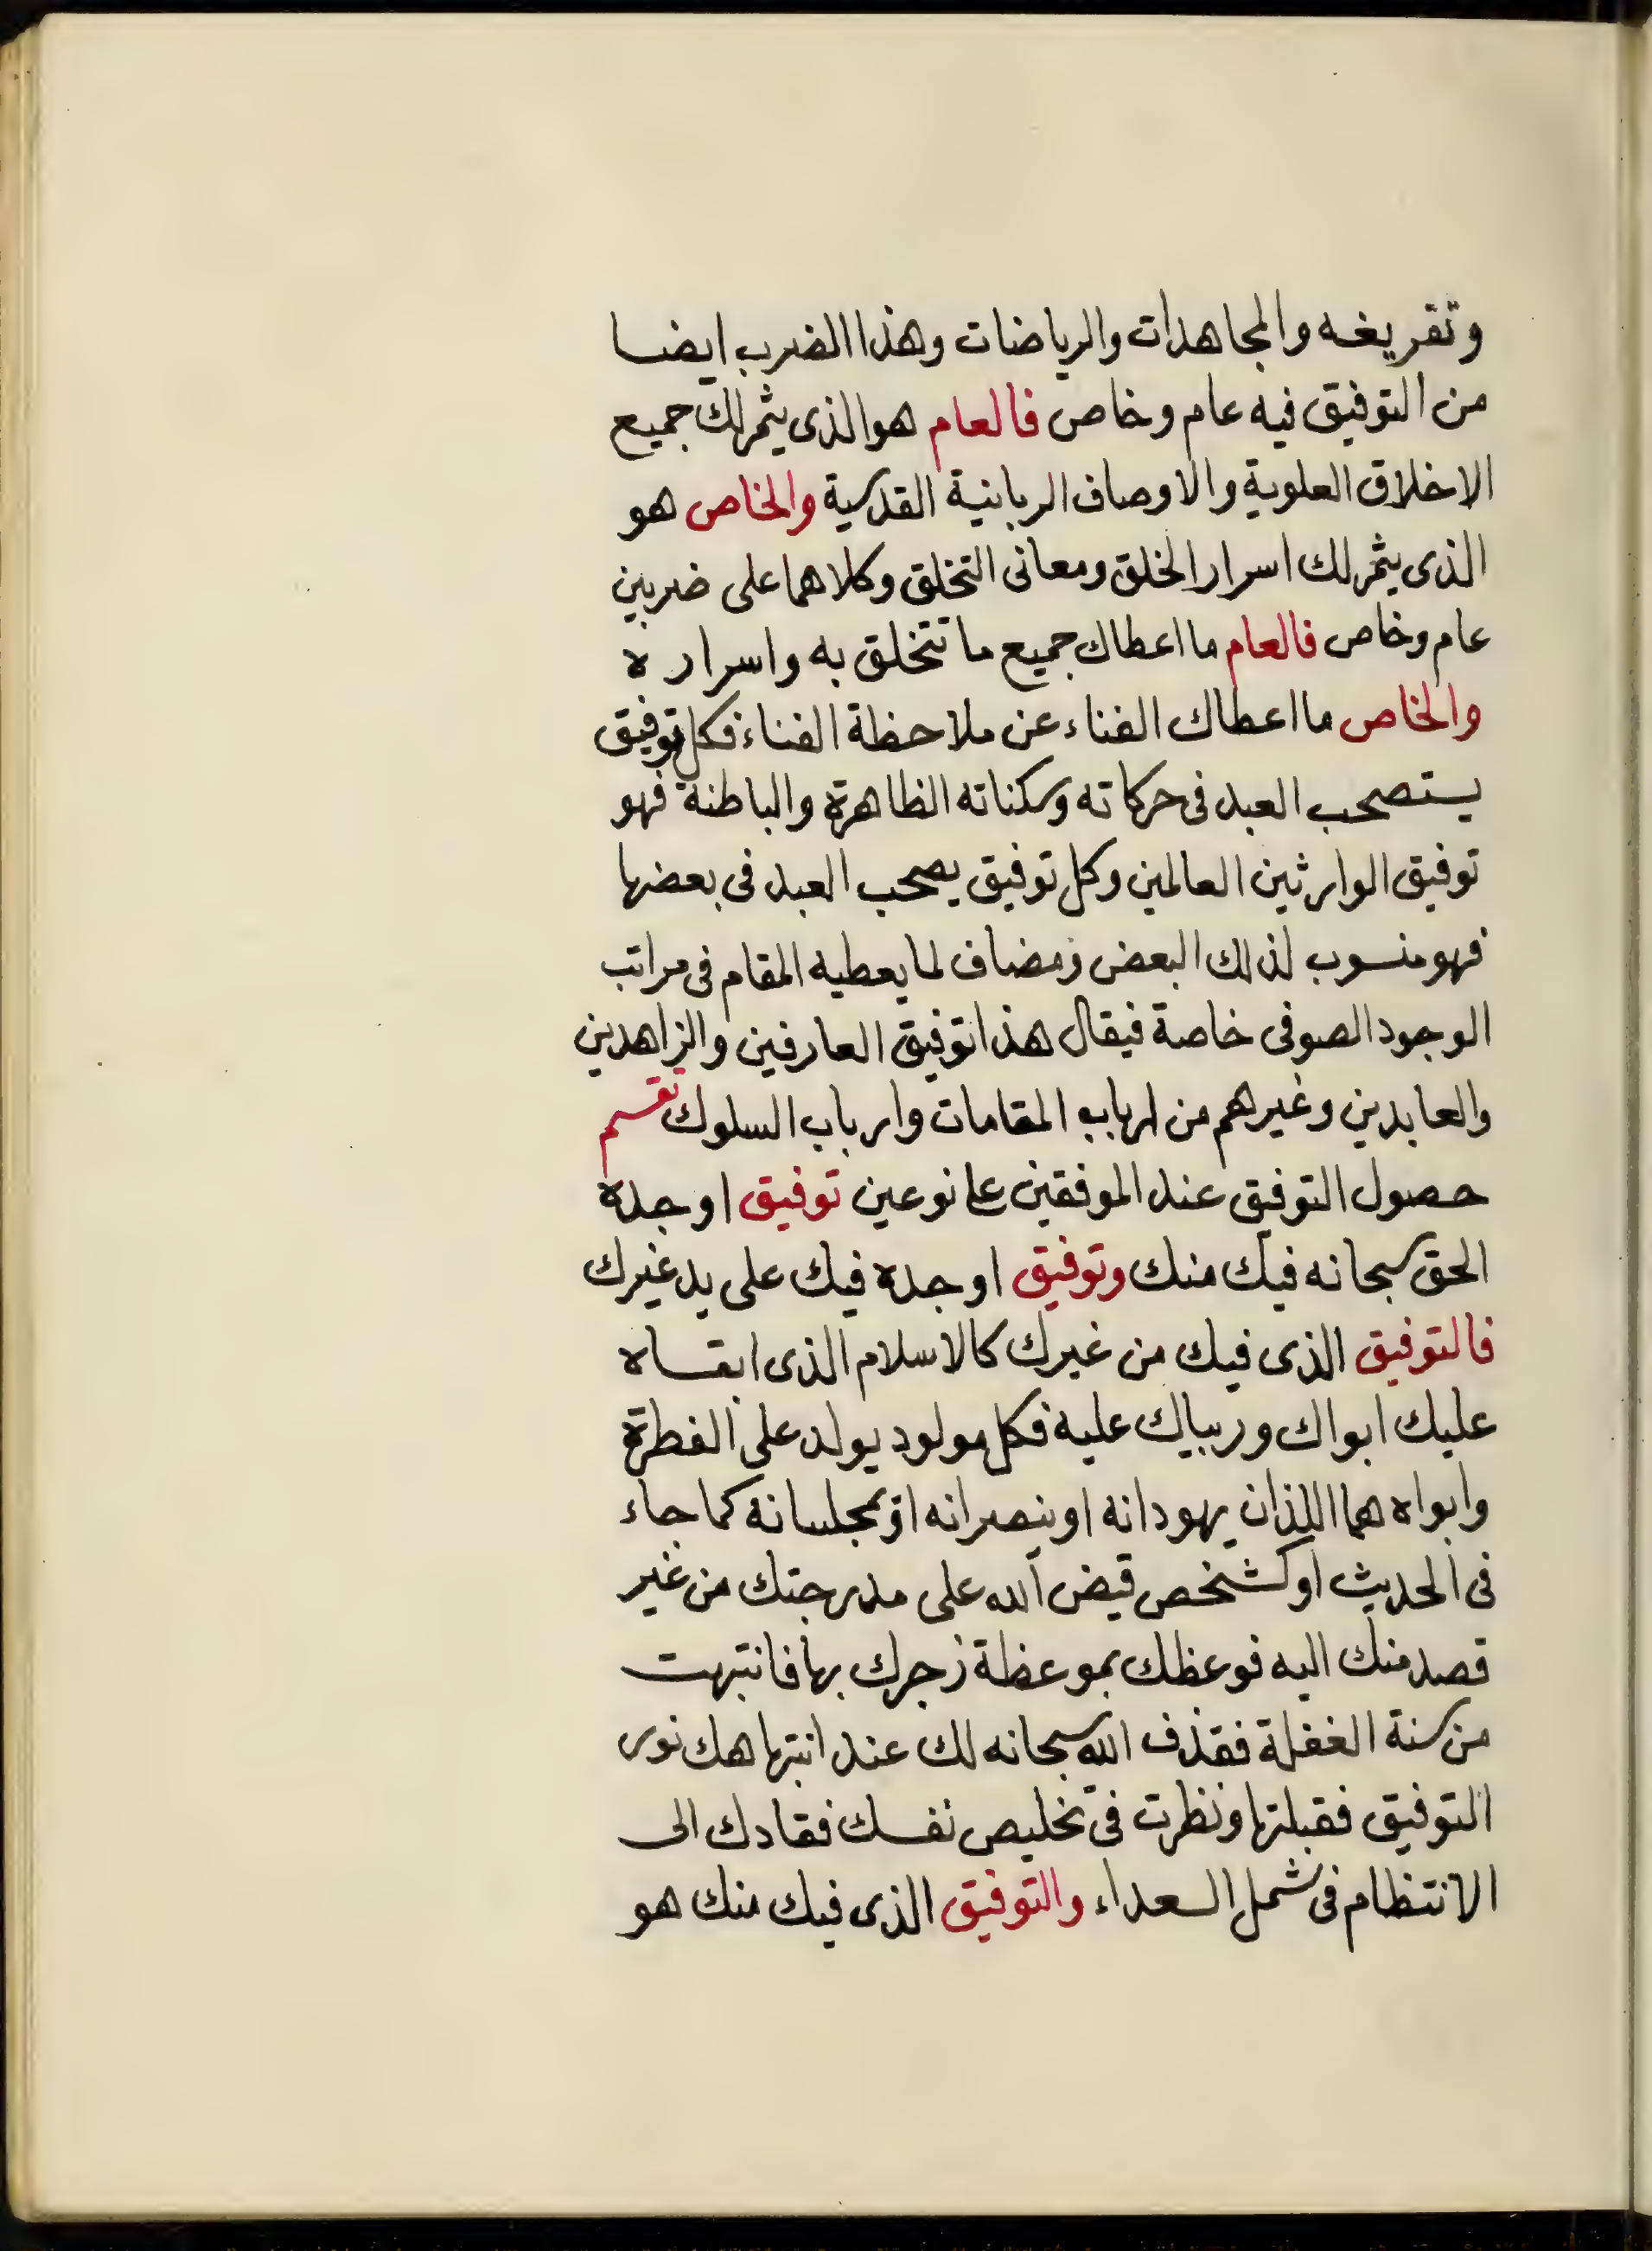 وتفريغه والمجاهدات والرياضات وهذا الضرب ايضا
من التوفيق فيه عام وخاص فالعام هو الذى يثمر لك جميع
الاخلاق العلوية والاوصاف الربانية القدسية والخاص هو
الذى يثمر لك اسرار الخلق ومعانى التخلق وكلاهما على ضربين
عام وخاص فالعام ما اعطاك جميع ما تتخلق به واسراره
والخاص ما اعطاك الفناء عن ملاحظة الفناء فكل توفيق
يستصحب العبد فى حركاته وسكناته الظاهرة والباطنة فهو
توفيق الوارثين العالمين وكل توفيق يصحب العبد فى بعضها
فهو منسوب لذلك البعض ومضاف لما يعطيه المقام فى مراتب
الوجود الصوفى خاصة فيقال هذا توفيق العارفين والزاهدين
والعابدين وغيرهم من ارباب المقامات وارباب السلوك تقسم
حصول التوفيق عند الموفقين على نوعين توفيق اوجده
الحق سبحانه فيك منك وتوفيق اوجده فيك على يد غيرك
فالتوفيق الذى فيك من غيرك كالاسلام الذى ابقاه
عليك ابواك وربياك عليه فكل مولود يولد على الفطرة
وابواه هما اللذان يهودانه او ينصرانه او يمجلسانه كما جاء
فى الحديث او كشخص قيض الله على مدرجتك من غير
قصد منك اليه فوعظك بموعظة زجرك بها فانتبهت
من سنة الغفلة فقذف الله سبحانه لك عند انتباهك نور
التوفيق فقبلتها ونظرت فى تخليص نفسك فقادك الى
الانتظام فى شمل السعداء والتوفيق الذى فيك منك هو